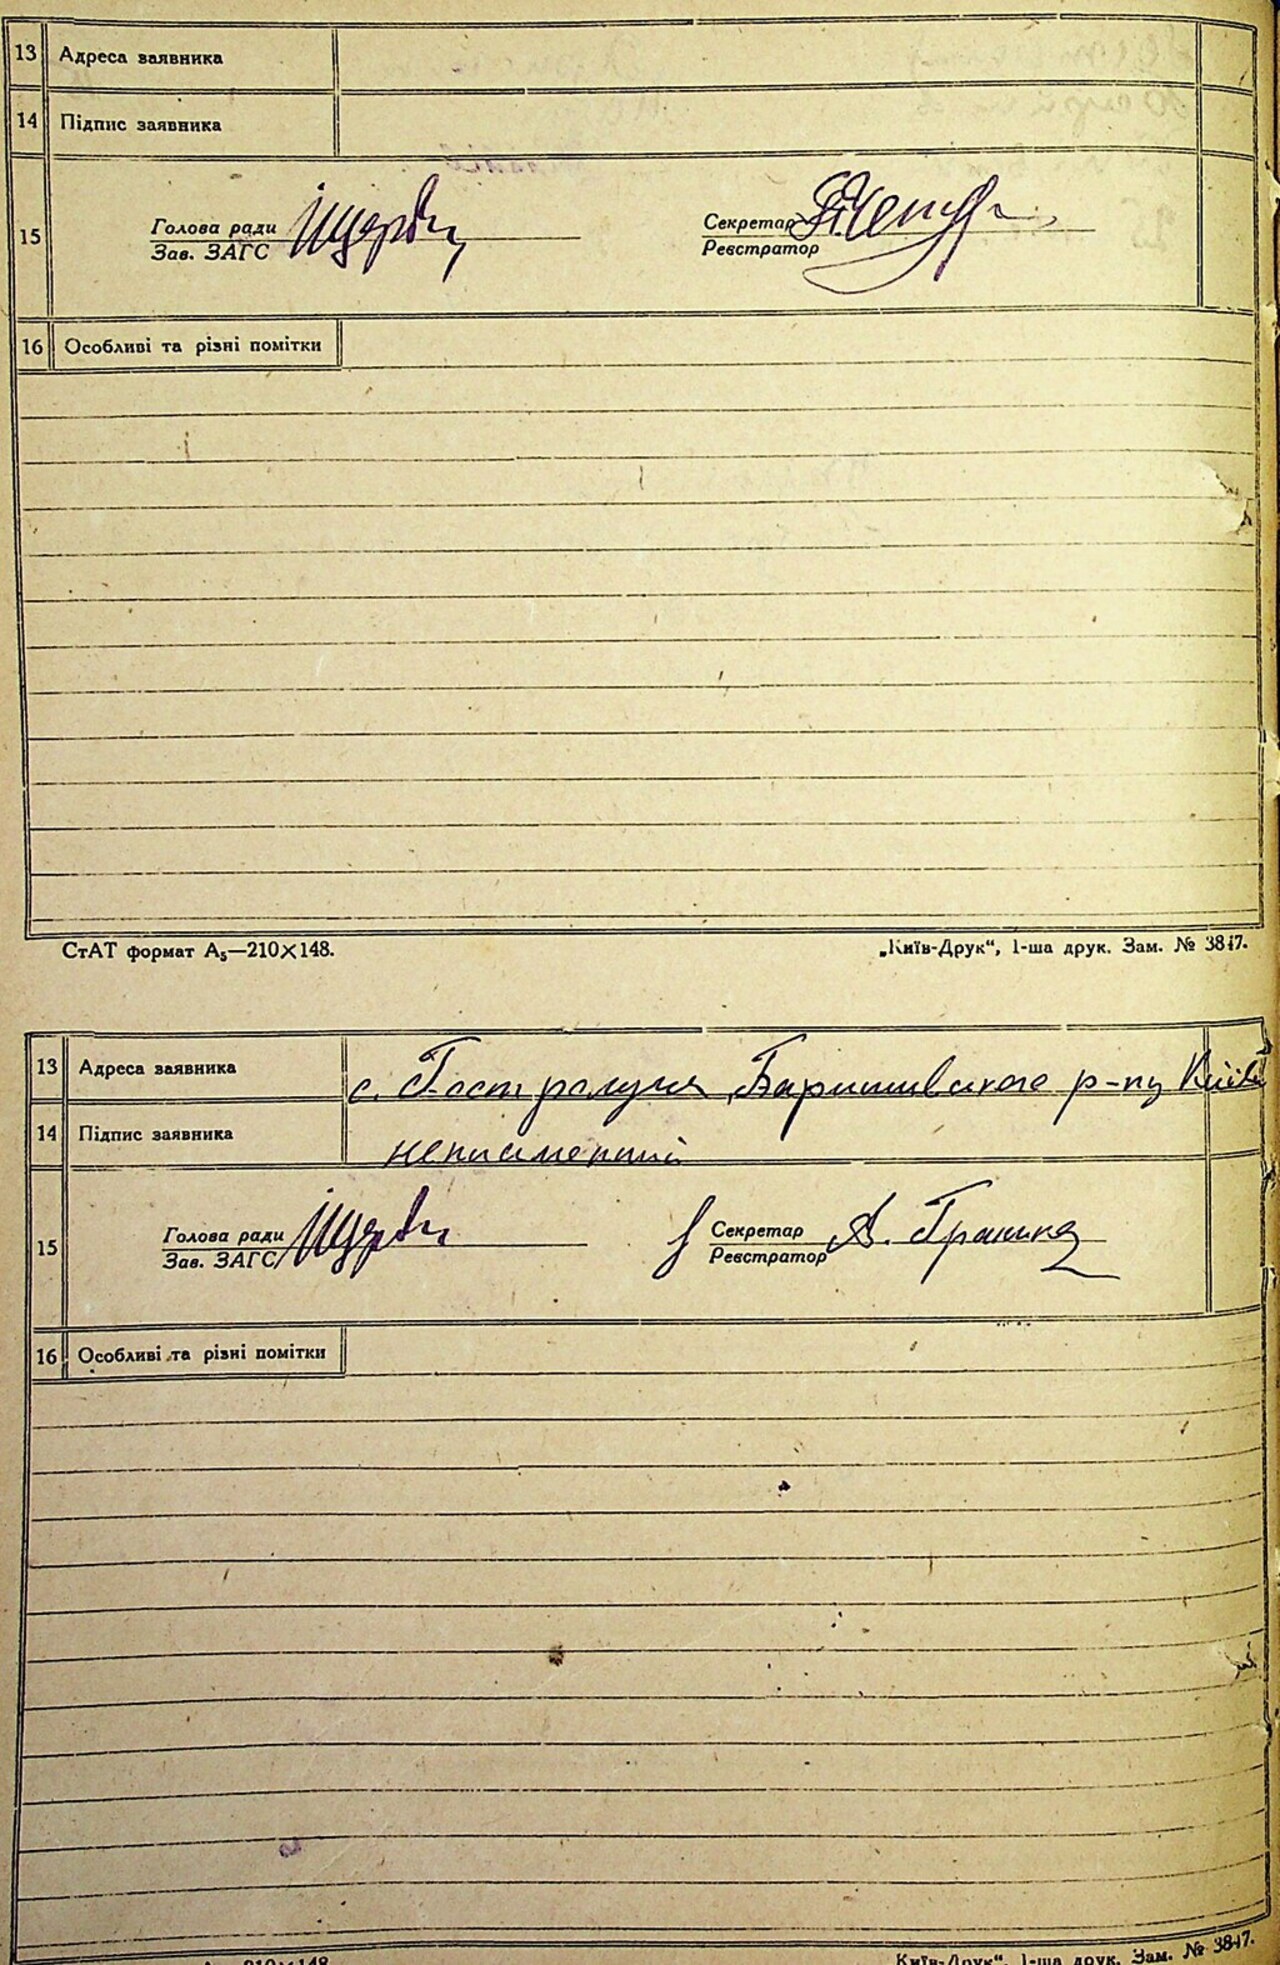 13 Адреса заявника
14 Підпис заявника
15 Голова ради Секретар
Зав. ЗАГС Реєстратор
16 Особливі та різні помітки
СтАТ формат А₅—210×148. „Київ-Друк“, 1-ша друк. Зам. № 3847.
13 Адреса заявника с. Гостролуччя Баришивського р-ну Київ
14 Підпис заявника неписменний
15 Голова ради Секретар
Зав. ЗАГС Реєстратор
16 Особливі та різні помітки
210×148 Київ-Друк“, 1-ша друк. Зам. № 3847.